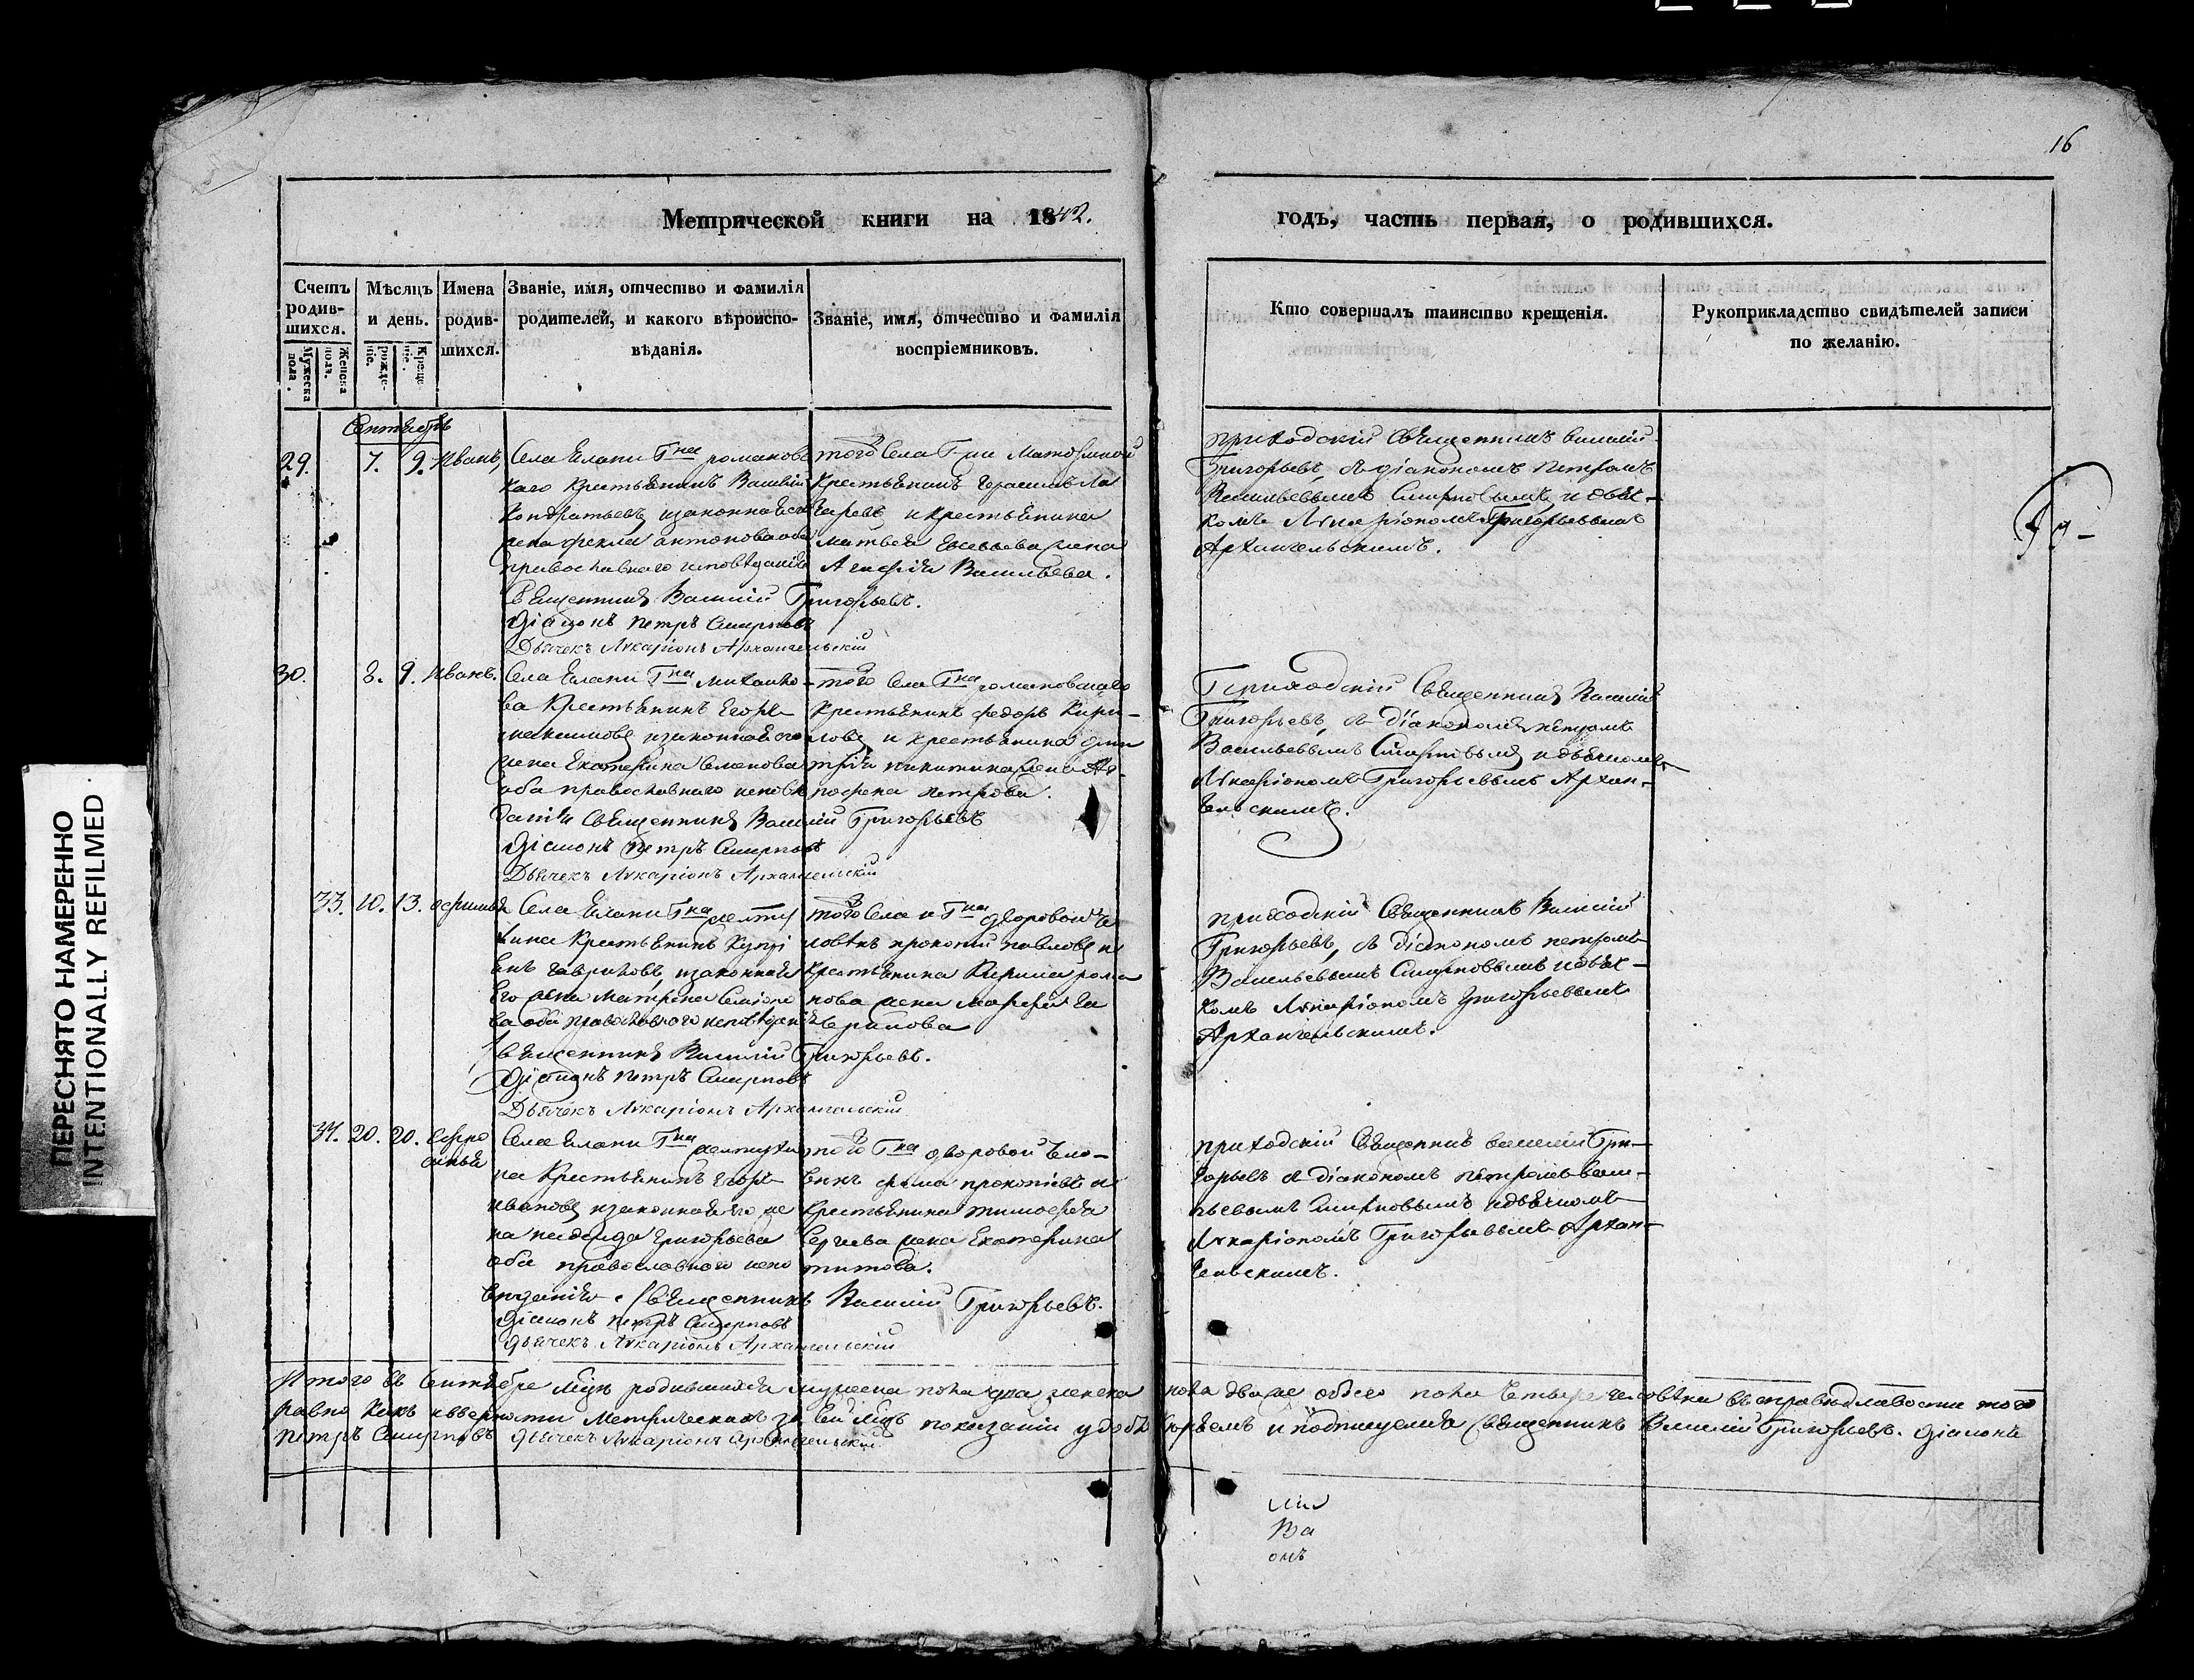 16
Метрической книги на 1842.
годъ, часть первая, о родившихся.
Счетъ родив-шихся.
Мужеска пола.
Женска пола.
Мѣсяцъ и день.
рожде-нія.
креще-нія.
Имена родив-шихся.
Званіе, имя, отчество и фамилія
родителей, и какого вѣроиспо-
вѣданія.
Званіе, имя, отчество и фамилія
воспріемниковъ.
Кто совершалъ таинство крещенія.
Рукоприкладство свидѣтелей записи
по желанію.
Сентябрь
29. 7. 9. Иванъ,
Села Елани Гна романовс
каго Крестьянинъ Василій
Кондратьевъ, изаконная его
жена фекла антонова оба
православнаго исповѣданія
Священникъ Василій Григорьевъ.
Діаконъ Петръ Смирновъ
Дьячекъ Иларіонъ Архангельскій
того Села Г-жи
Крестьянинъ Герасимъ
и крестьянина
матвея жена
Васильева.
приходскій Священникъ василій
Григорьевъ, съ діакономъ Петромъ
Васильевымъ Смирновымъ, и дьяч-
комъ Иларіономъ Григорьевымъ
Архангельскимъ.
30. 8. 9. Иванъ.
Села Елани Гна Михаико-
ва Крестьянинъ Егоръ
максимовъ изаконная его
жена Екатерина Семенова
оба православнаго исповѣ
данія Священникъ Василій Григорьевъ
Діаконъ Петръ Смирновъ
Дьячекъ Иларіонъ Архангельскій
того Села Гна романовскаго
Крестьянинъ федоръ Кири-
ловъ и крестьянина дми
трія никитина жена Аг-
рофена петрова.
Приходскій Священникъ Василій
Григорьевъ, съ діакономъ петромъ
Васильевымъ Смирновымъ и дьячкомъ
Иларіономъ Григорьевымъ Архан-
гельскимъ.
33. 10. 13.
Села Елани Гна желту
хина Крестьянинъ
гавриловъ, изаконная
Его жена Матрена
ва оба православного исповѣданія
Священникъ Василій Григорьевъ.
Діаконъ Петръ Смирновъ
Дьячекъ Иларіонъ Архангельскій
того Села и Гна дворовой че
ловѣкъ прокопій павловъ и
Крестьянина Кирила рома
нова жена
приходскій Священникъ Василій
Григорьевъ, съ діакономъ петромъ
Васильевымъ Смирновымъ и дьяч-
комъ Иларіономъ Григорьевымъ
Архангельскимъ.
34. 20. 20. Ефро
синья
Села Елани Гна желтухи
на Крестьянинъ Егоръ
ивановъ изаконная его же
на Григорьева
оба православного испо
вѣданія. Священникъ Василій Григорьевъ.
Діаконъ Петръ Смирновъ
Дьячекъ Иларіонъ Архангельскій
того Гна дворовой чело-
векъ фома прокопіевъ и
Крестьянина тимофея
Сергиева жена Екатерина
титова.
приходскій Священникъ василій Гри-
горьевъ съ діакономъ петромъ васи-
льевымъ Смирновымъ и дьячкомъ
Иларіономъ Григорьевымъ Архан-
гельскимъ.
Итого въ Сентябре мцѣ родившихся мужеска пола два женска пола два же обоего пола четыре человѣка въ справедливости того
равно какъ и верности Метрическихъ за сей мцъ показаній удостоверяемъ и подписуемся Священникъ Василій Григорьевъ. Діаконъ
Петръ Смирновъ Дьячекъ Иларіонъ Архангельскій
Ва
омъ
ПЕРЕСНЯТО НАМЕРЕННО
INTENTIONALLY REFILMED